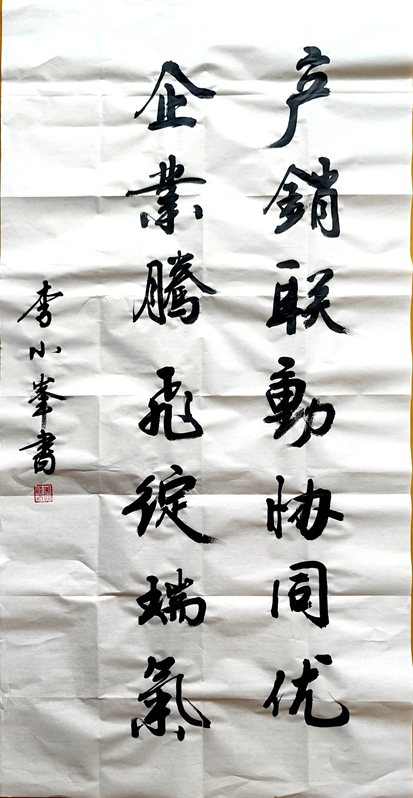 产銷联動协同优
企業腾飛绽瑞氣
李小峯書